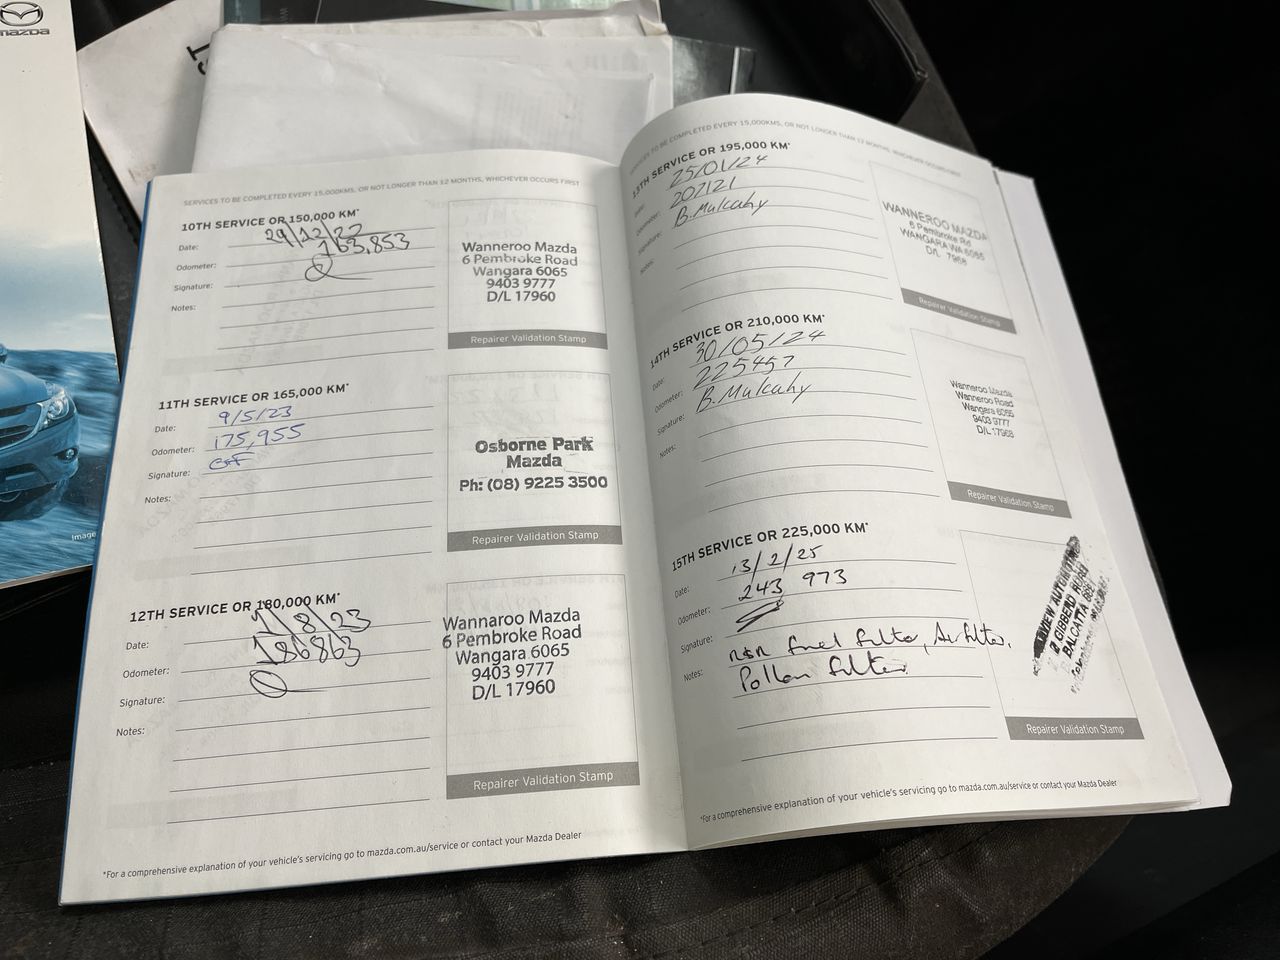 mazda
SERVICES TO BE COMPLETED EVERY 15,000KMS, OR NOT LONGER THAN 12 MONTHS, WHICHEVER OCCURS FIRST
10TH SERVICE OR 150,000 KM*
Date: 29/12/22
Odometer: 163,853
Signature:
Notes:
Wanneroo Mazda
6 Pembroke Road
Wangara 6065
9403 9777
D/L 17960
Repairer Validation Stamp
11TH SERVICE OR 165,000 KM*
Date: 9/5/23
Odometer: 175,955
Signature:
Notes:
Osborne Park
Mazda
Ph: (08) 9225 3500
Repairer Validation Stamp
12TH SERVICE OR 180,000 KM*
Date: 1/8/23
Odometer: 186863
Signature:
Notes:
Wannaroo Mazda
6 Pembroke Road
Wangara 6065
9403 9777
D/L 17960
Repairer Validation Stamp
*For a comprehensive explanation of your vehicle's servicing go to mazda.com.au/service or contact your Mazda Dealer
SERVICES TO BE COMPLETED EVERY 15,000KMS, OR NOT LONGER THAN 12 MONTHS, WHICHEVER OCCURS FIRST
13TH SERVICE OR 195,000 KM*
Date: 25/01/24
Odometer: 207121
Signature: B. Mulcahy
Notes:
WANNEROO MAZDA
6 Pembroke Rd
WANGARA WA 6065
D/L 7968
Repairer Validation Stamp
14TH SERVICE OR 210,000 KM*
Date: 30/05/24
Odometer: 225457
Signature: B. Mulcahy
Notes:
Wanneroo Mazda
Wanneroo Road
Wangara 6055
9403 9777
D/L 17968
Repairer Validation Stamp
15TH SERVICE OR 225,000 KM*
Date: 13/2/25
Odometer: 243 973
Signature:
Notes: R&R fuel filter, Air filter,
Pollen filter.
2 GIBBERD ROAD
BALCATTA
Repairer Validation Stamp
*For a comprehensive explanation of your vehicle's servicing go to mazda.com.au/service or contact your Mazda Dealer
Image